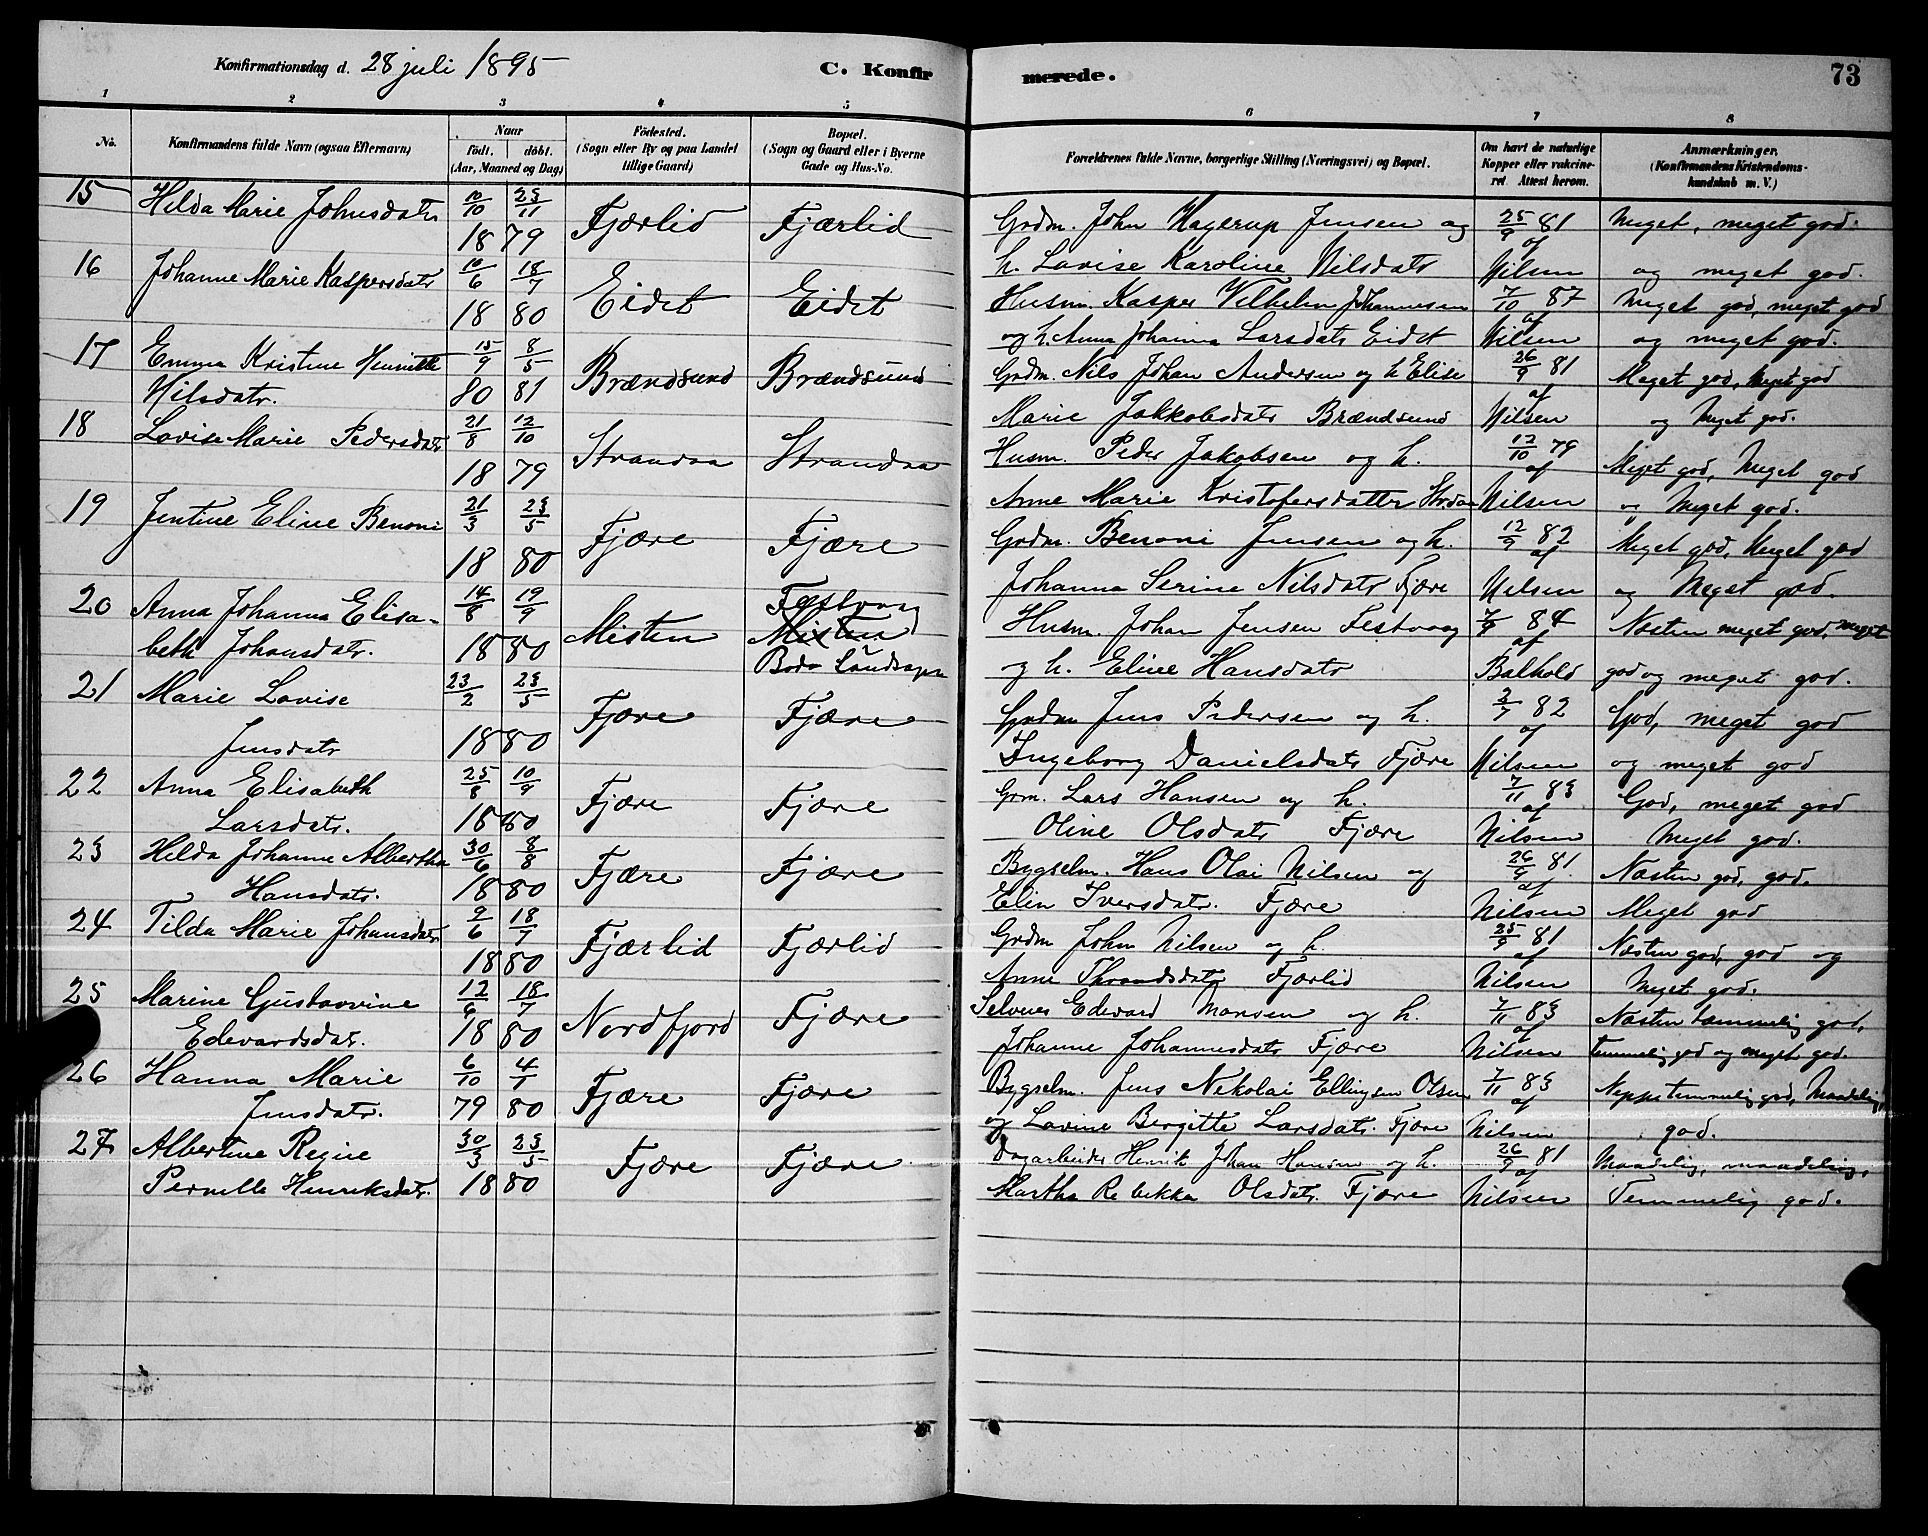 Konfirmationsdag d. 28 juli 1895
C. Konfirmerede.
73
1 2 3 4 5 6 7 8
No.
Konfirmandens fulde Navn (ogsaa Efternavn)
Naar
födt. döbt.
(Aar, Maaned og Dag)
Födested.
(Sogn eller By og paa Landet
tillige Gaard)
Bopæl.
(Sogn og Gaard eller i Byerne
Gade og Hus-No.
Forældrenes fulde Navne, borgerlige Stilling (Næringsvei) og Bopæl.
Om havt de naturlige
Kopper eller vakcine-
ret. Attest herom.
Anmærkninger.
(Konfirmandens Kristendoms-
kundskab m. V.)
15 Hilda Marie Johnsdatr 10/10 23/11 Fjærlid Fjærlid Grdm. John Hagerup Jensen og 25/9 81 Meget, meget god.
18 79 h. Lavise Karoline Nilsdatr af Nilsen og meget god.
16 Johanne Marie Kaspersdatr 10/6 18/7 Eidet Eidet Husm. Kasper Vilhelm Johannesen 7/10 87 Meget god, meget god
18 80 og h. Anna Johanna Larsdatr Eidet af Nilsen og meget god.
17 Emma Kristine Henriette 15/9 8/5 Brændsund Brændsund Grdm. Nils Johan Andersen og h Elise 26/9 81 Meget god, Meget god
Nilsdatr. 80 81 Marie Jakkobsdatr Brændsund af Nilsen og Meget god.
18 Lovise Marie Pedersdatr 21/8 12/10 Strandaa Strandaa Husm. Peder Jakobsen og h. 12/10 79 Meget god, Meget god
18 79 Anne Marie Kristofersdatter af Nilsen og Meget god.
19 Jentine Eline Benoni 21/3 23/5 Fjære Fjære Grdm. Benoni Jensen og h. 12/9 82 Meget god, Meget god
18 80 Johanna Serine Nilsdatr Fjære af Nilsen og Meget god.
20 Anna Johanna Elisa- 14/8 19/9 Misten Festvaag Husm. Johan Jensen Festvaag 84 Næsten meget god, meget
beth Johansdatr. 18 80 Misten og h. Eline Hansdatr af Balhold god og meget god.
Bodø Landsogn
21 Marie Lovise 23/2 23/5 Fjære Fjære Grdm Jens Pedersen og h. 2/7 82 God, meget god
Jensdatr 18 80 Ingeborg Danielsdatr Fjære af Nilsen og meget god
22 Anna Elisabeth 25/8 10/9 Fjære Fjære Grm. Lars Hansen og h. 7/11 83 God, meget god
Larsdatr. 18 80 Oline Olsdatr Fjære af Nilsen Meget god.
23 Hilda Johanne Albertha 30/6 8/8 Fjære Fjære Bygselm. Hans Olai Nilsen og 26/9 81 Næsten god, god.
Hansdatr. 18 80 Elin Iversdatr. Fjære af Nilsen Meget god
24 Tilda Marie Johansdatr 2/6 18/7 Fjærlid Fjærlid Grdm John Nilsen og h. 25/9 81 Næsten god, god og
18 80 Anne Thrandsdatr Fjærlid af Nilsen Meget god.
25 Marine Gustavvine 12/6 18/7 Nordfjord Fjære Selveier Edevard Monsen og h. 7/11 83 Næsten temmelig god,
Edevardsdat. 18 80 Johanne Johannesdatr Fjære af Nilsen temmelig god og meget god.
26 Hanna Marie 6/10 4/1 Fjære Fjære Bygselm. Jens Nikolai Ellingsen Olsen 7/11 83 Neppe temmelig god, Maadelig,
Jensdatr. 79 80 og Lavine Bergitte Larsdatr. Fjære af Nilsen god.
27 Albertine Regine 30/3 23/5 Fjære Fjære Dagarbeider Henrik Johan Hansen og h. 26/9 81 Maadelig, maadelig,
Pernille Henriksdatr. 18 80 Martha Rebekka Olsdatr. Fjære af Nilsen Temmelig god.